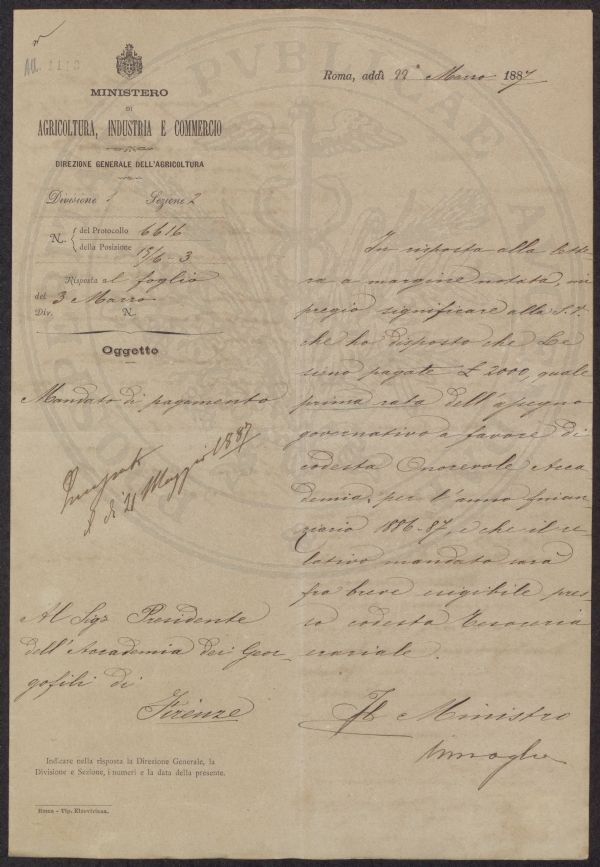 1113
MINISTERO
DI
AGRICOLTURA, INDUSTRIA E COMMERCIO
DIREZIONE GENERALE DELL'AGRICOLTURA
Divisione 1 Sezione 2
N. del Protocollo 6616
della Posizione 15/6-3
Risposta al foglio
del 3 Marzo
Div. N.
Oggetto
Mandato di pagamento
di 21 Maggio 1887
Al Sigr Presidente
dell'Accademia dei Geor-
gofili di
Firenze
Indicare nella risposta la Direzione Generale, la
Divisione e Sezione, i numeri e la data della presente.
Roma - Tip. Elzeviriana.
Roma, addì 22 Marzo 1887
In risposta alla lette
ra a margine notata, mi
pregio significare alla S.V.
che ho disposto che Le
sieno pagate £ 2000, quale
prima rata dell'assegno
governativo a favore di
codesta Onorevole Acca
demia, per l'anno finan
ziario 1886-87, e che il re
lativo mandato sarà
fra breve esigibile pres
so codesta Tesoreria
erariale.
Il Ministro